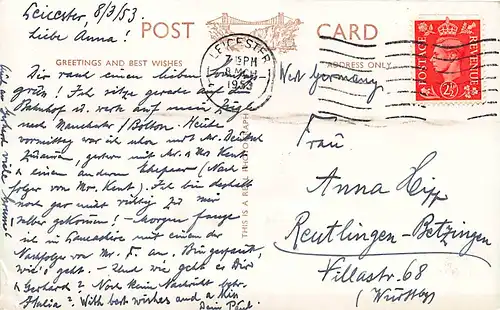 Leicester, 8/3/53
Liebe Anna!
POST CARD
GREETINGS AND BEST WISHES
ADDRESS ONLY
LEICESTER
7 15 PM
8 MCH
1953
POSTAGE
REVENUE
2½D
West Germany
Dir rasch einen lieben
gruß! Ich sitze gerade auf dem
Bahnhof u. warte auf meinen Zug
nach Manchester/Bolton. Heute
vormittag war ich schon mit Mr.
zusammen, gestern mit Mr. & Mrs Kent
& einem anderen Ehepaar (Nach
folger von Mr. Kent). Ich bin deshalb
noch gar nicht richtig zu mir
selber gekommen! – Morgen fange
ich in Lancashire mit einem der
Nachfolger von Mr. F. an. Bin gespannt,
wie's geht. – Und wie geht es Dir
& Gerhard? Noch keine Nachricht betr.
Italia? With best wishes and a kiss
Dein Paul.
THIS IS A REAL PHOTOGRAPH
Frau
Anna Hipp
Reutlingen-Betzingen
Villastr. 68
(Württbg)